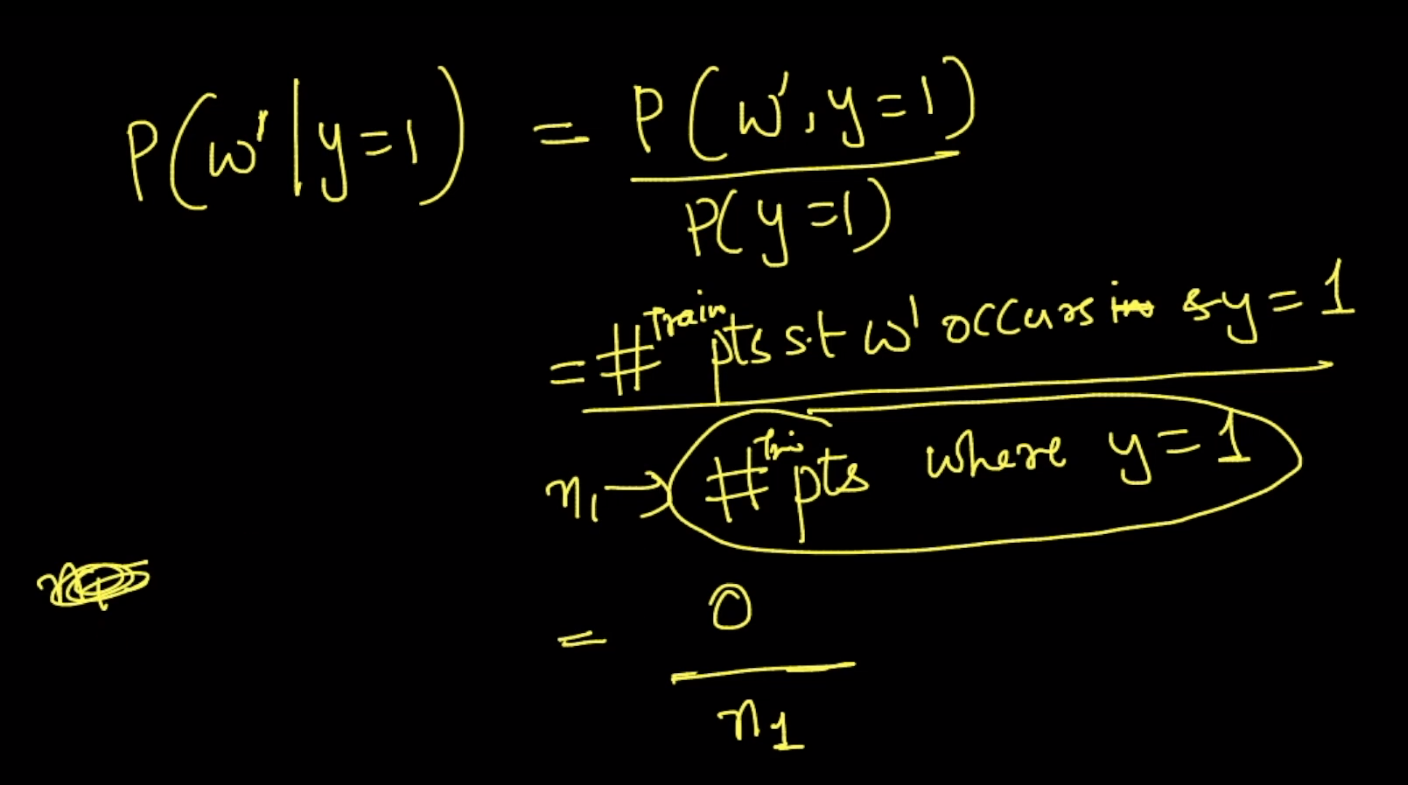 P(w'|y=1) = P(w', y=1)
P(y=1)
= # Train pts s.t w' occurs in & y = 1
n₁ → # pts where y = 1
= 0
n₁